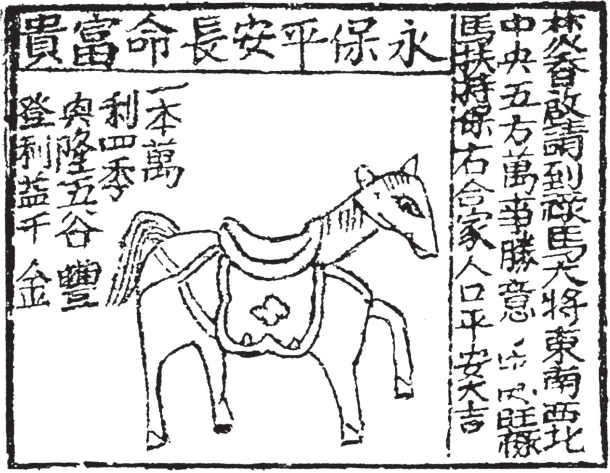 焚香啟請到祿馬大將東南西北
中央五方萬事勝意旺祿
馬扶持保右合家人口平安大吉
永保平安長命富貴
一本萬
利四季
興隆五谷豐
登利益千金